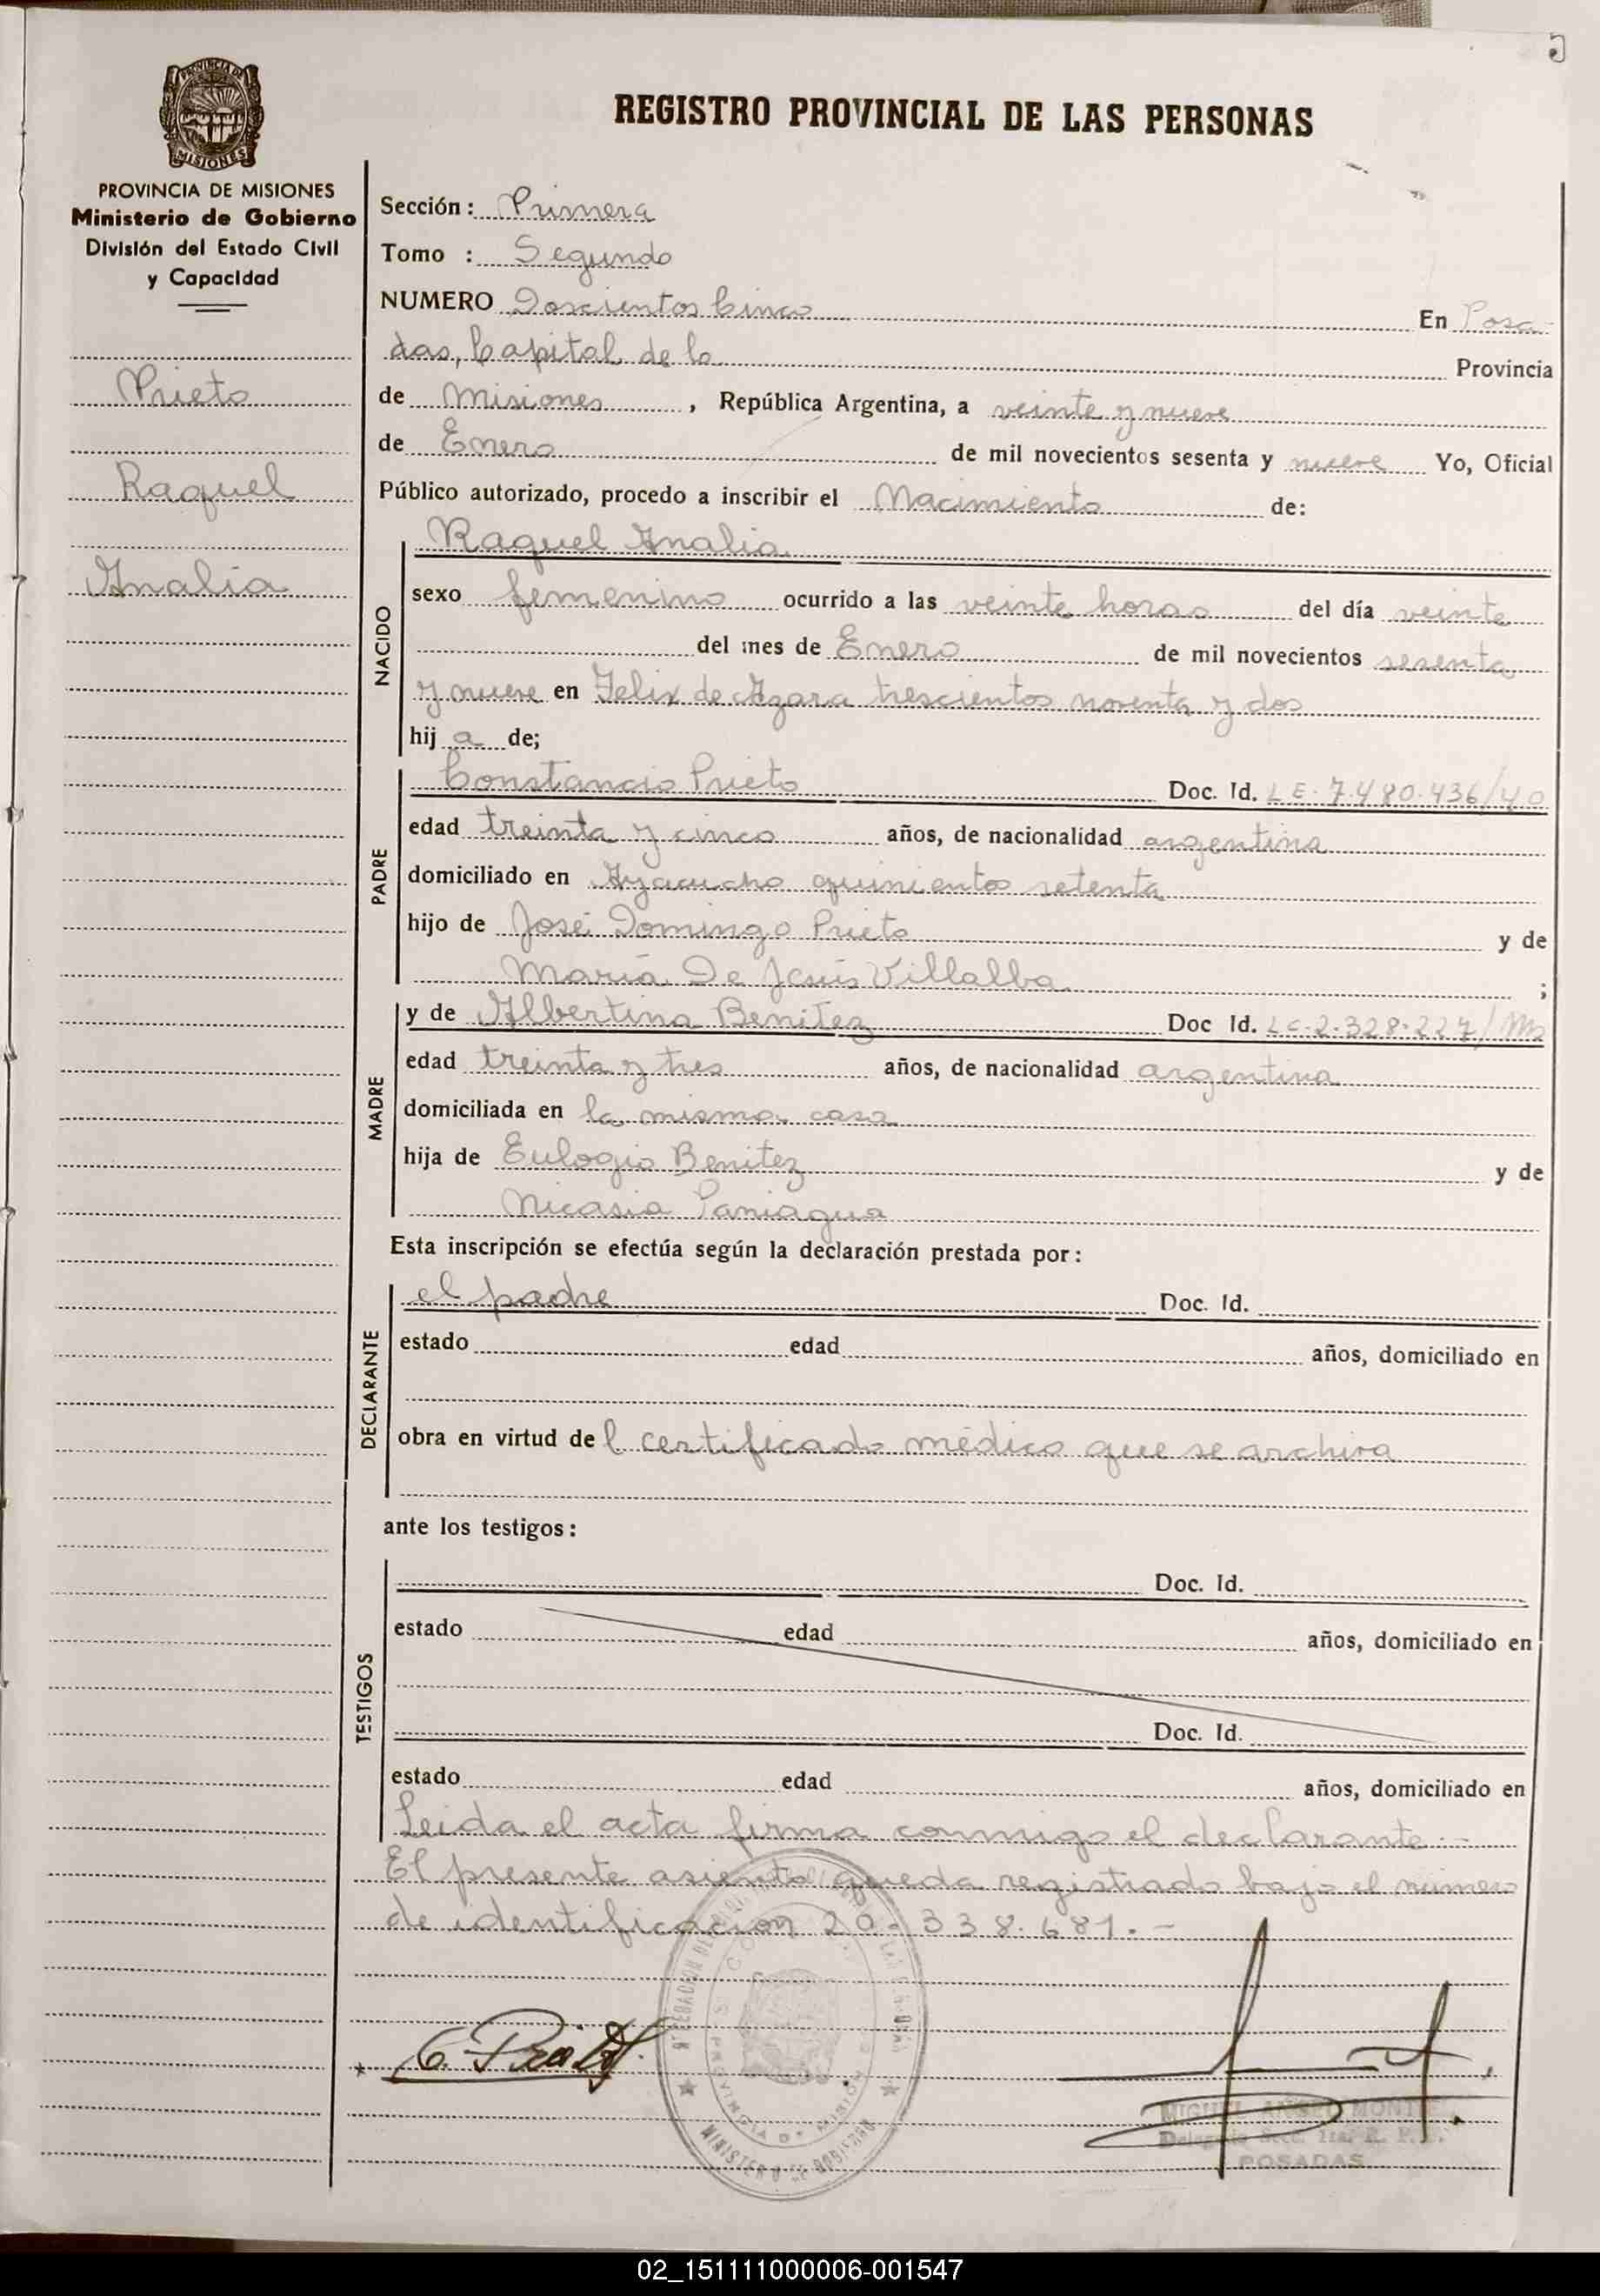 REGISTRO PROVINCIAL DE LAS PERSONAS
PROVINCIA DE MISIONES
Ministerio de Gobierno
División del Estado Civil
y Capacidad
Prieto
Raquel
Analia
Sección: Primera
Tomo : Segundo
NUMERO Doscientos Cinco En Posa-
das, Capital de la Provincia
de Misiones, República Argentina, a veinte y nueve
de Enero de mil novecientos sesenta y nueve Yo, Oficial
Público autorizado, procedo a inscribir el Nacimiento de:
NACIDO
Raquel Analia
sexo femenino ocurrido a las veinte horas del día veinte
del mes de Enero de mil novecientos sesenta
y nueve en Felix de Azara trescientos noventa y dos
hij a de;
PADRE
Constancio Prieto Doc. Id. L E. 7.480.436/40
edad treinta y cinco años, de nacionalidad argentina
domiciliado en Ayacucho quinientos setenta
hijo de José Domingo Prieto y de
María De Jesús Villalba ;
MADRE
y de Albertina Benitez Doc Id. L C. 2.328.227/Ms
edad treinta y tres años, de nacionalidad argentina
domiciliada en la misma casa
hija de Eulogio Benitez y de
Nicasia Paniagua
Esta inscripción se efectúa según la declaración prestada por:
DECLARANTE
el padre Doc. Id.
estado edad años, domiciliado en
obra en virtud de l certificado médico que se archiva
ante los testigos:
TESTIGOS
Doc. Id.
estado edad años, domiciliado en
Doc. Id.
estado edad años, domiciliado en
Leida el acta firma conmigo el declarante.-
El presente asiento queda registrado bajo el número
de identificación 20.338.681.-
C. Prieto
MINISTERIO DE GOBIERNO
PROVINCIA DE MISIONES
MIGUEL ANGEL
POSADAS
02_151111000006-001547